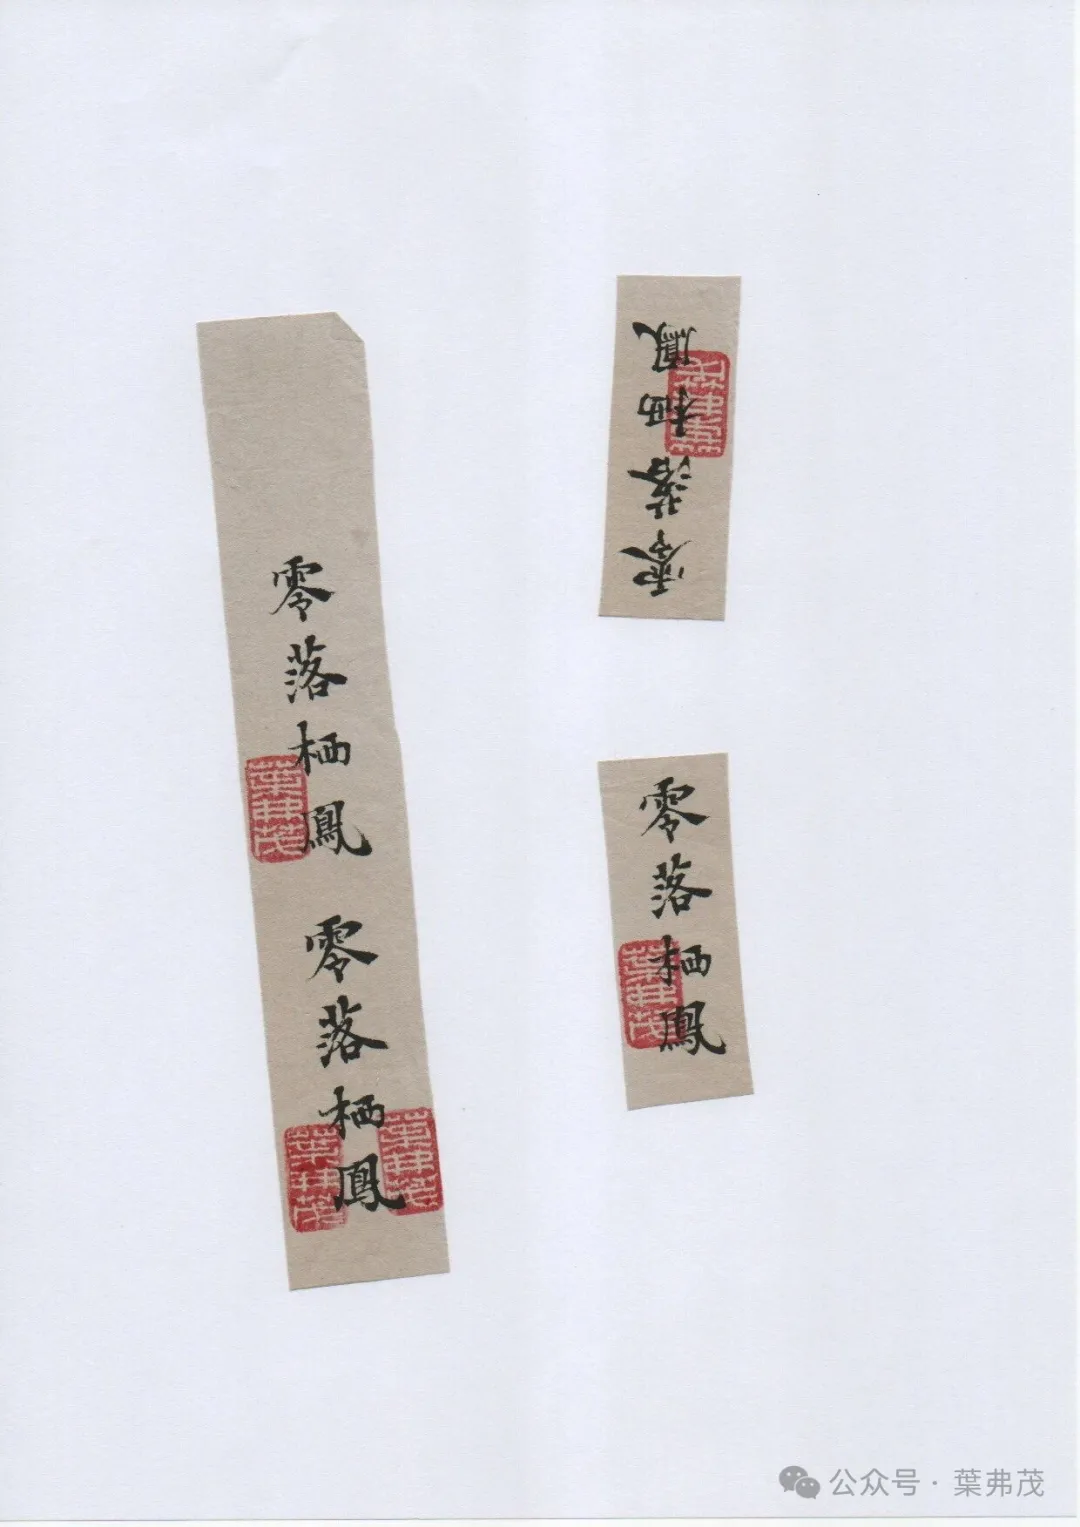 零落栖鳳
葉弗茂
零落栖鳳
葉弗茂
葉弗茂
零落栖鳳
葉弗茂
零落栖鳳
葉弗茂
公众号·葉弗茂